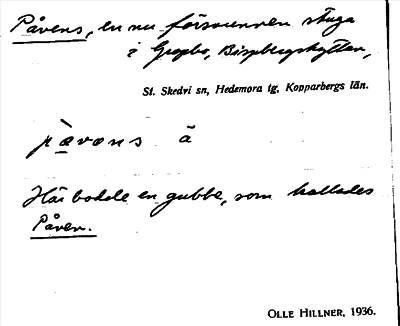 Påvens, en nu försvunnen stuga
i Gropbo, Bispbergshyttan,
St. Skedvi sn, Hedemora tg, Kopparbergs län.
pæ̀vɷns ā
Här bodde en gubbe, som kallades
Påven.
OLLE HILLNER, 1936.